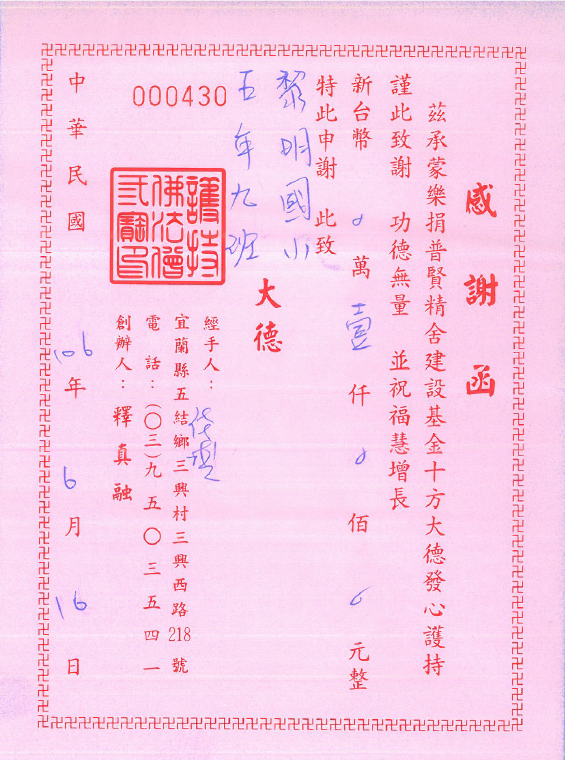 感謝函
茲承蒙樂捐普賢精舍建設基金十方大德發心護持
謹此致謝 功德無量 並祝福慧增長
新台幣 0 萬 壹 仟 0 佰 0 元整
特此申謝 此致
黎明國小
五年九班
大德
000430
護持佛法僧三寶印
經手人：
宜蘭縣五結鄉三興村三興西路218號
電話：(〇三)九五〇三五四一
創辦人：釋真融
中華民國 106 年 6 月 16 日